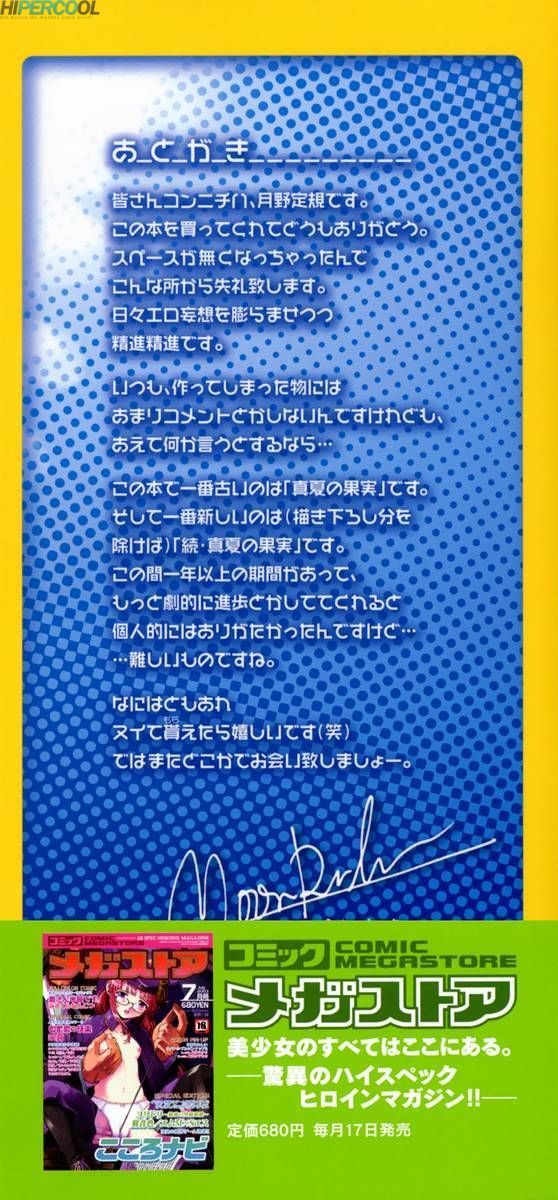 HIPERCOOL
あ_と_が_き_________
皆さんコンニチハ、月野定規です。
この本を買ってくれてどうもありがとう。
スペースが無くなっちゃったんで
こんな所から失礼致します。
日々エロ妄想を膨らませつつ
精進精進です。
いつも、作ってしまった物には
あまりコメントとかしないんですけれども、
あえて何か言うとするなら…
この本で一番古いのは「真夏の果実」です。
そして一番新しいのは(描き下ろし分を
除けば)「続・真夏の果実」です。
この間一年以上の期間があって、
もっと劇的に進歩とかしててくれると
個人的にはありがたかったんですけど…
…難しいものですね。
なにはともあれ
ヌイて貰えたら嬉しいです(笑)
もら
ではまたどこかでお会い致しましょー。
コミック COMIC MEGASTORE
メガストア
美少女のすべてはここにある。
―驚異のハイスペック
ヒロインマガジン!!―
定価680円 毎月17日発売
コミック COMIC MEGASTORE
メガストア
7月号
680YEN
18
こころナビ